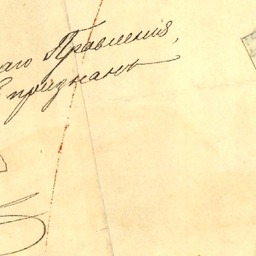 аго Правленія,
признанъ